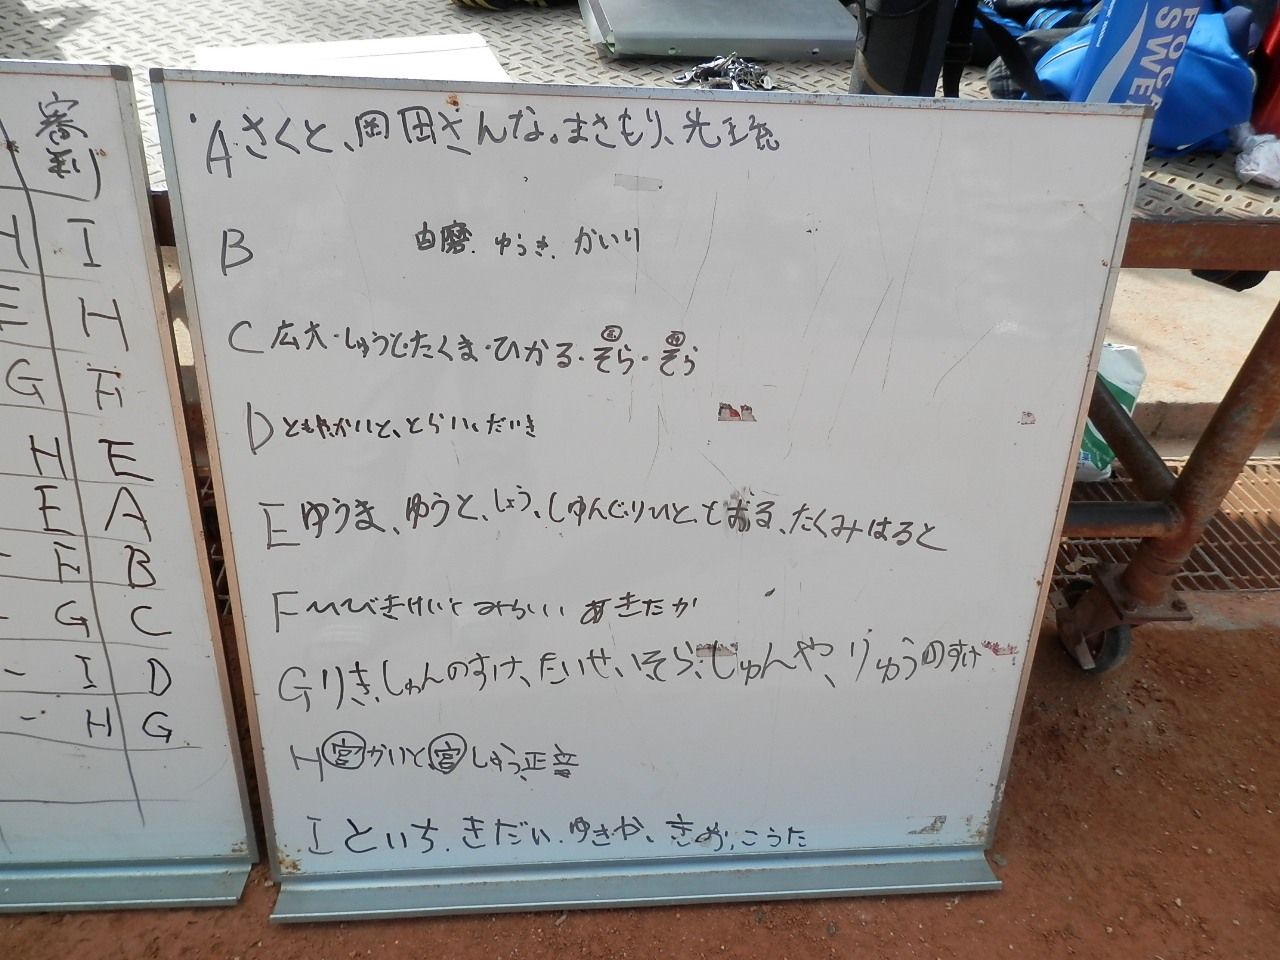 審判
H I
E H
G F
H E
E A
F B
G C
I D
H G
A さくと、岡田さんな。まさもり、先生
B 由磨. ゆうき. かいり
C 広大・しゅうじ・たくま・ひかる・そら・そら
D ともや、かいと、とらい、だいき
E ゆうま、ゆうと、しょう、しゅん、とおる、たくみ はると
F ひびき けいと みらい あきたか
G りき、しゅんのすけ、たいせい、そら、しゅんや、りゅうのすけ
H 宮 かいと 宮 しゅう、正音
I といち. きだい. ゆきや、こうた
POCA
SWEA